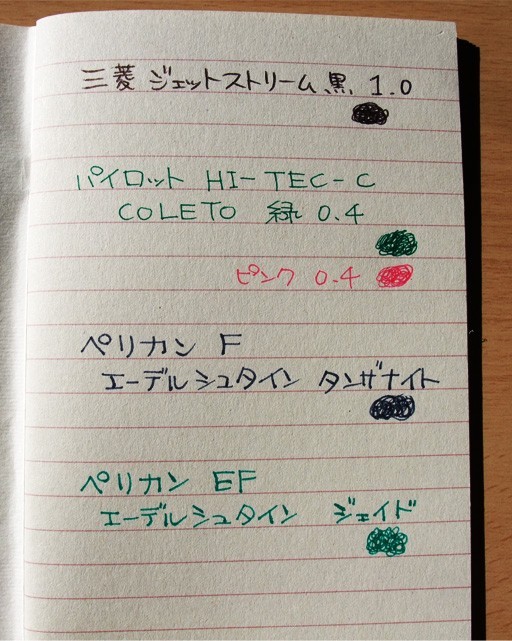 三菱 ジェットストリーム 黒 1.0
パイロット HI-TEC-C
COLETO 緑 0.4
ピンク 0.4
ペリカン F
エーデルシュタイン タンザナイト
ペリカン EF
エーデルシュタイン ジェイド